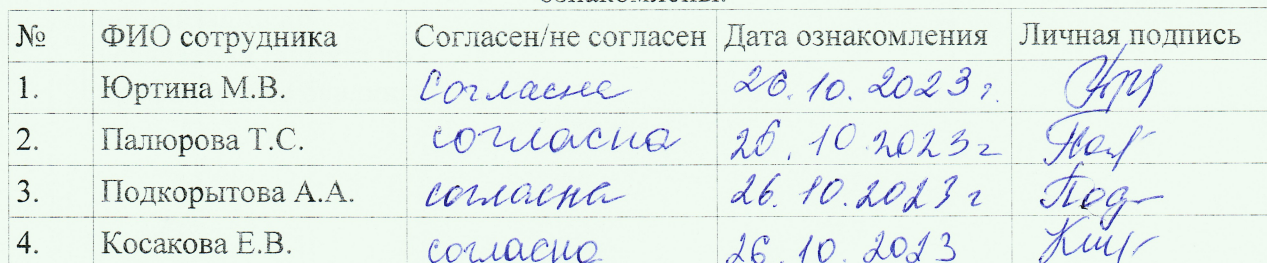 ознакомлены.
№ ФИО сотрудника Согласен/не согласен Дата ознакомления Личная подпись
1. Юртина М.В. Согласна 26.10.2023 г.
2. Палюрова Т.С. согласна 26.10.2023 г
3. Подкорытова А.А. согласна 26.10.2023 г Под
4. Косакова Е.В. согласна 26.10.2023